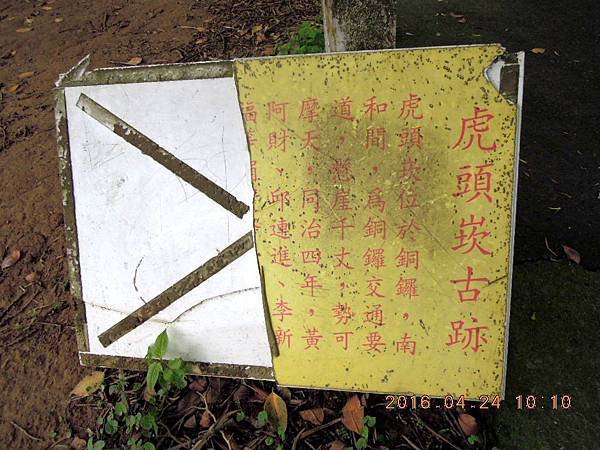 虎頭崁古跡
虎頭崁位於銅鑼,南
和間,為銅鑼交通要
道,懸崖千丈,勢可
摩天,同治四年,黃
阿財、邱連進、李新
福
2016.04.24 10:10